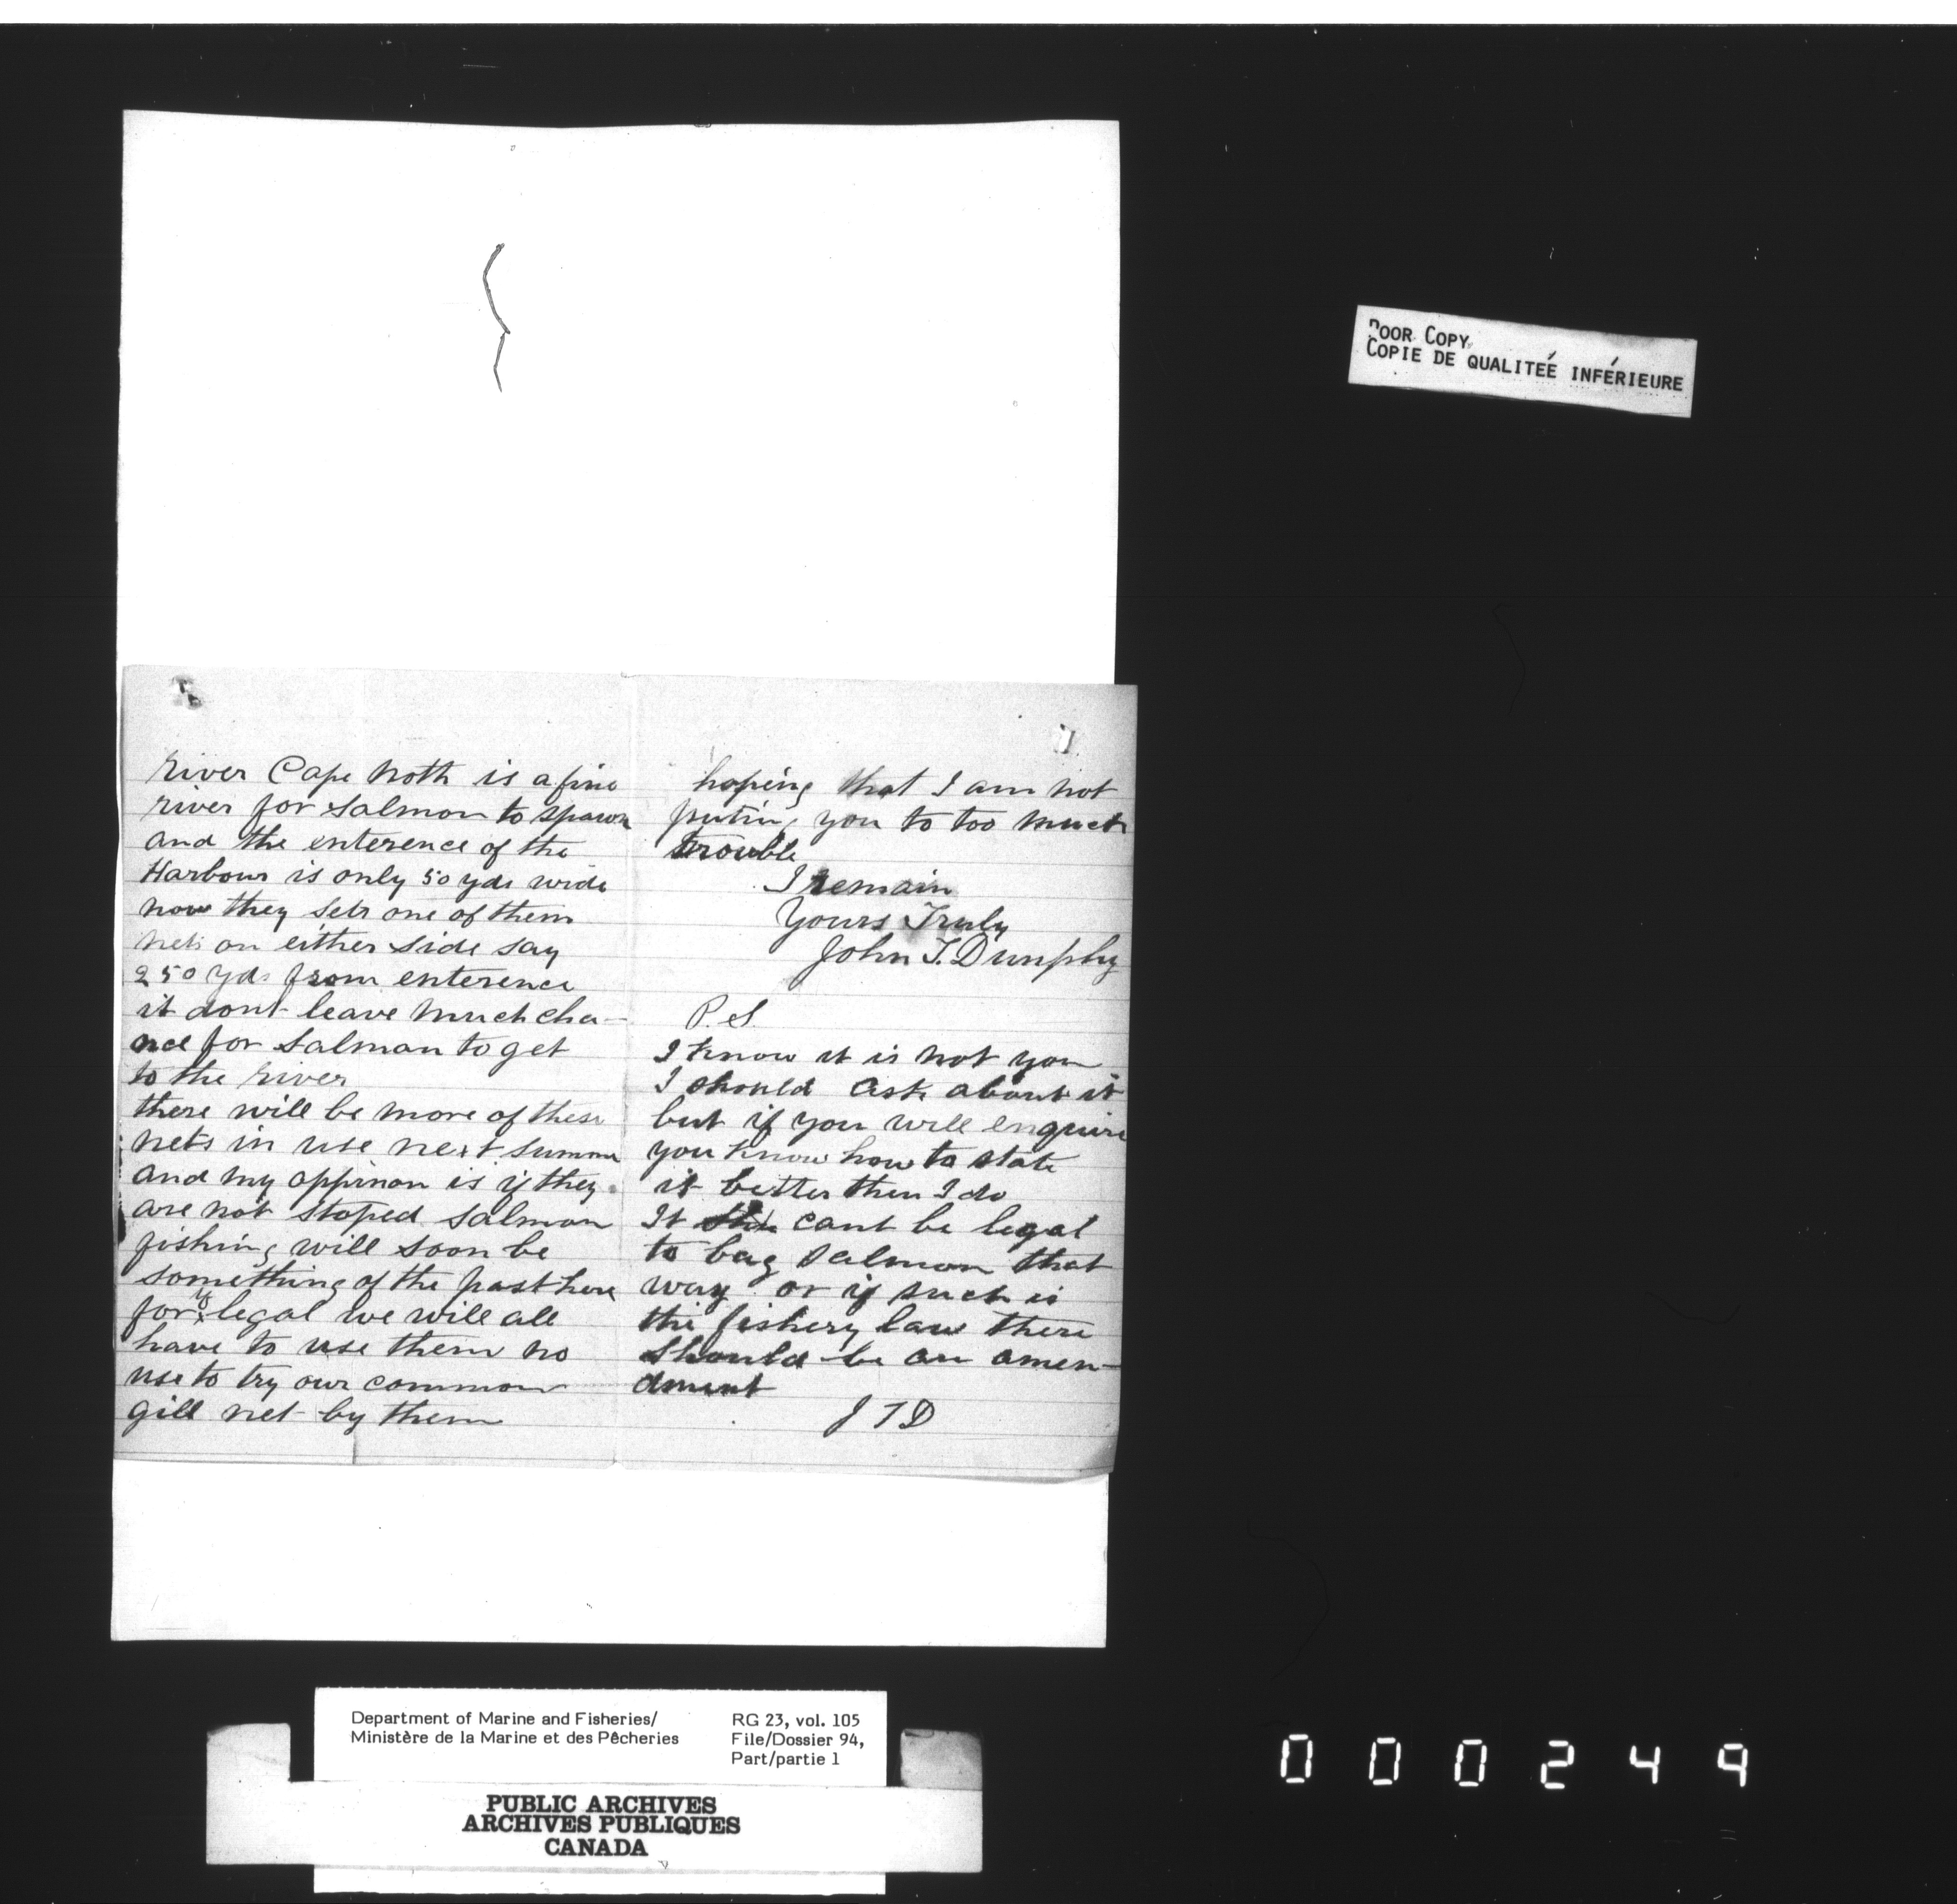 River Cape Noth is a fine
river for salmon to spawn
and the enterence of the
Harbour is only 50 yds wide
now they sets one of them
nets on either side say
250 yds from enterence
it dont leave much cha-
nce for salmon to get
to the river
there will be more of these
nets in use next summe
and my oppinon is if they
are not stoped salmon
fishing will soon be
something of the past here
for if legal we will all
have to use them no
use to try our common
gill net by them
hoping that I am not
puting you to too much
trouble
I remain
Yours Truly
John T. Dunphy
P.S.
I know it is not you
I should ask about it
but if you will enquire
you know how to state
it better then I do
It cant be legal
to bag salmon that
way or if such is
the fishery law there
should be an amen-
dment
J T D
POOR COPY
COPIE DE QUALITEÉ INFÉRIEURE
Department of Marine and Fisheries/
Ministère de la Marine et des Pêcheries
RG 23, vol. 105
File/Dossier 94,
Part/partie 1
PUBLIC ARCHIVES
ARCHIVES PUBLIQUES
CANADA
000249